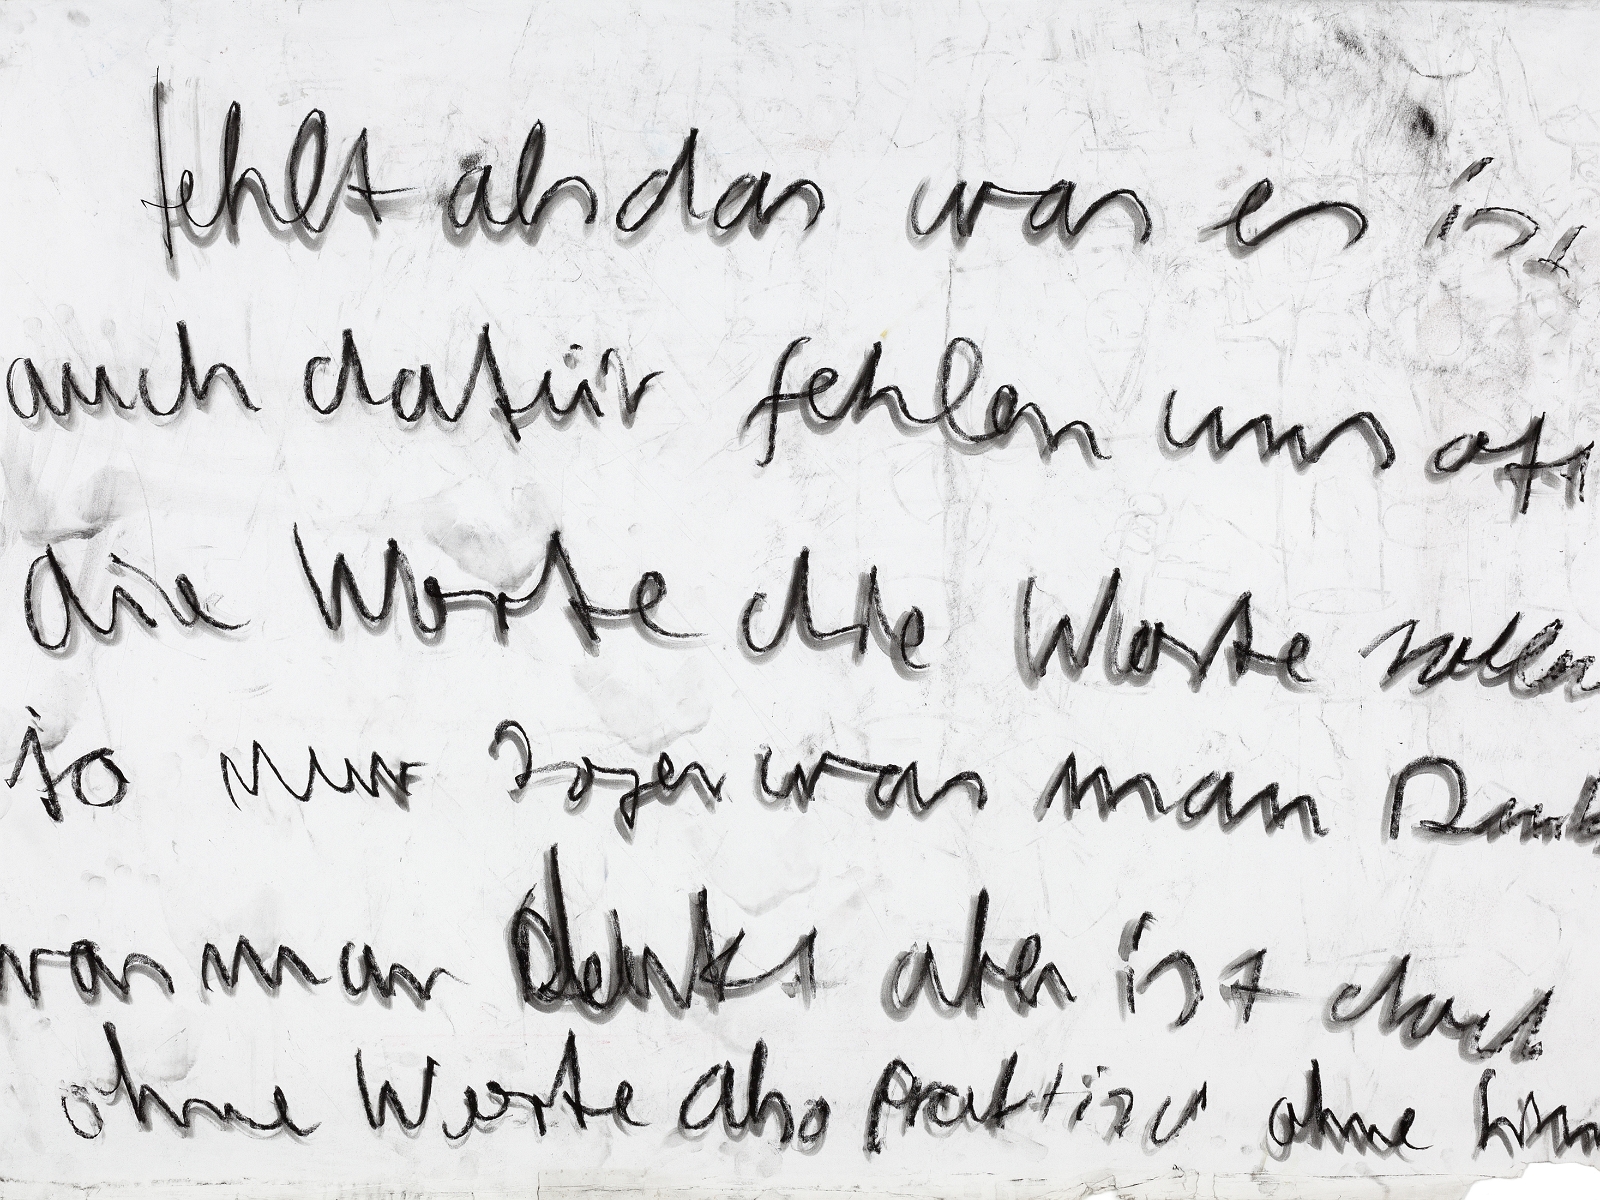 fehlt als das was es ist
auch dafür fehlen uns oft
die Worte die Worte sollen
so nur sagen was man Denkt
was man denkt aber ist doch
ohne Worte also praktisch ohne